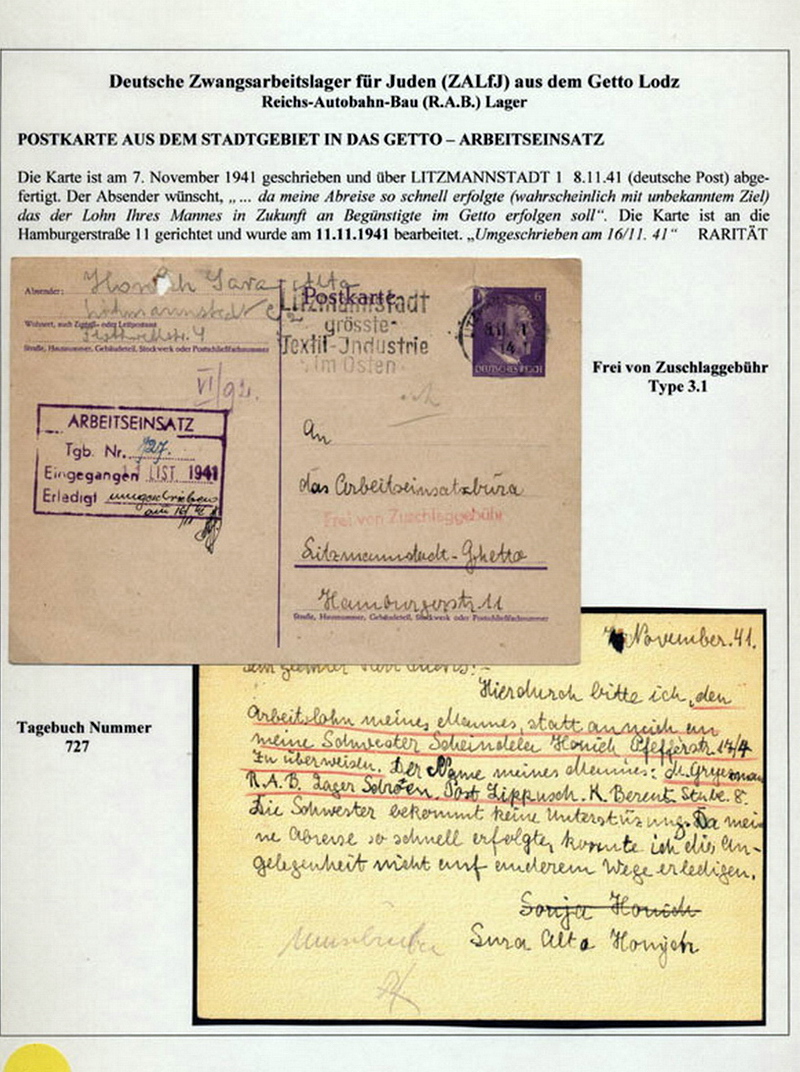 Deutsche Zwangsarbeitslager für Juden (ZALfJ) aus dem Getto Lodz
Reichs-Autobahn-Bau (R.A.B.) Lager
POSTKARTE AUS DEM STADTGEBIET IN DAS GETTO – ARBEITSEINSATZ
Die Karte ist am 7. November 1941 geschrieben und über LITZMANNSTADT 1 8.11.41 (deutsche Post) abge-
fertigt. Der Absender wünscht, „... da meine Abreise so schnell erfolgte (wahrscheinlich mit unbekanntem Ziel)
das der Lohn Ihres Mannes in Zukunft an Begünstigte im Getto erfolgen soll“. Die Karte ist an die
Hamburgerstraße 11 gerichtet und wurde am 11.11.1941 bearbeitet. „Umgeschrieben am 16/11. 41“ RARITÄT
Absender:
Sara Alta
Wohnort, auch Zustell- oder Leitpostamt
Straße, Hausnummer, Gebäudeteil, Stockwerk oder Postschließfachnummer
Postkarte
Litzmannstadt
grösste-
Textil-Industrie
im Osten
6
DEUTSCHES REICH
VI/92.
ARBEITSEINSATZ
Tgb. Nr. 727.
Eingegangen 11 LIST. 1941
Erledigt umgeschrieben
am 16/11 41
An
das Arbeitseinsatzbüro
Frei von Zuschlaggebühr
Litzmannstadt-Ghetto
Hamburgerstr. 11
Straße, Hausnummer, Gebäudeteil, Stockwerk oder Postschließfachnummer
Frei von Zuschlaggebühr
Type 3.1
Tagebuch Nummer
727
November.41.
Hierdurch bitte ich, den
Arbeitslohn meines Mannes, statt an mich an
meine Schwester Scheindela Honich Pfefferstr. 14/4
zu überweisen. Der Name meines Mannes: M. Gryzman
R.A.B. Lager Schröen. Post Lippusch. K. Berent. Stube. 8.
Die Schwester bekommt keine Unterstüzung. Da mei-
ne Abreise so schnell erfolgte, konnte ich die An-
gelegenheit nicht auf anderem Wege erledigen.
Sonja Honich
Sura Alta Honych